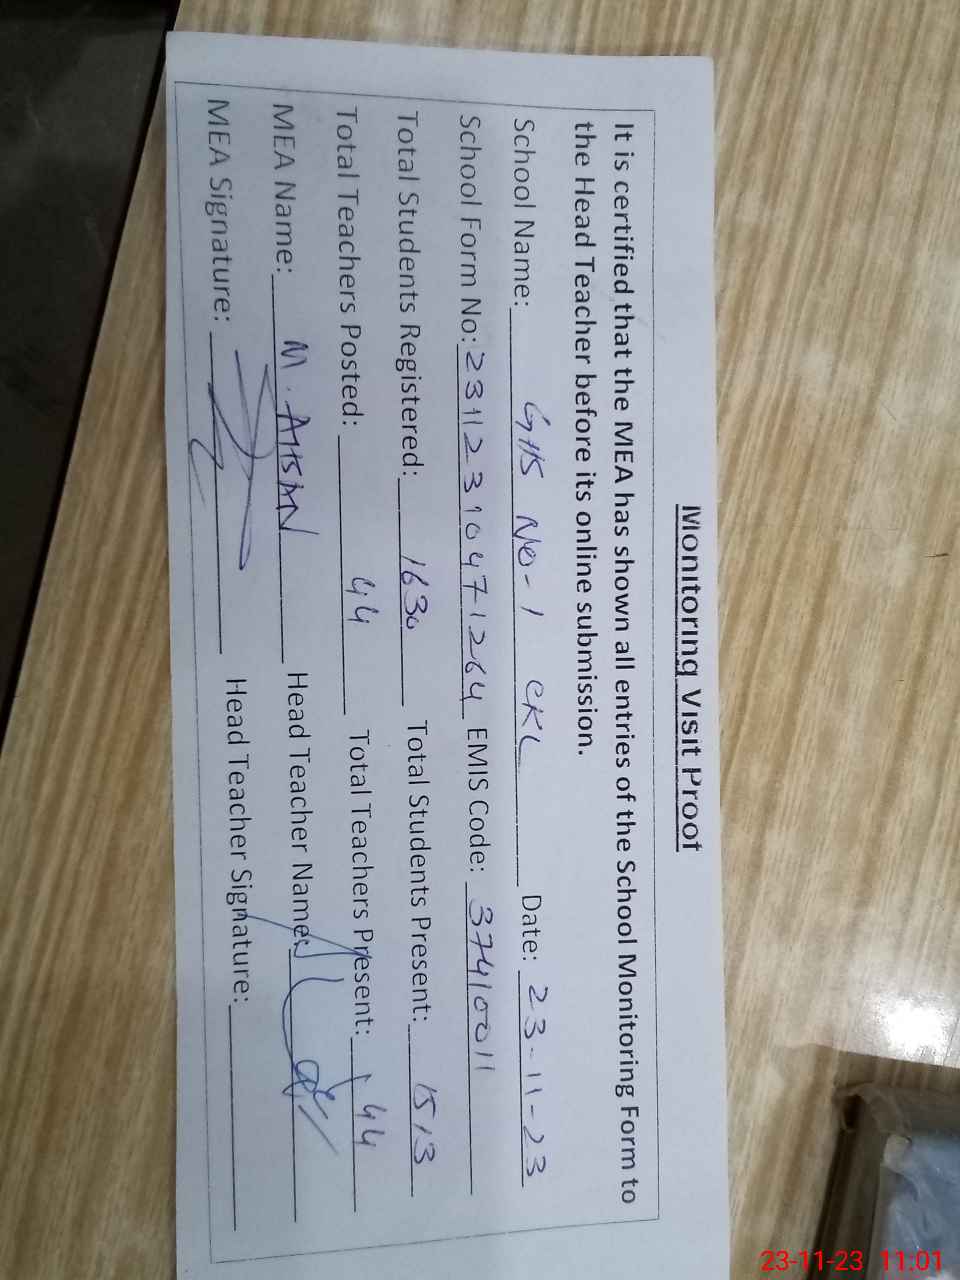 Monitoring Visit Proof
It is certified that the MEA has shown all entries of the School Monitoring Form to
the Head Teacher before its online submission.
School Name: GHS No-1 CKL Date: 23-11-23
School Form No: 23112310471264 EMIS Code: 37410011
Total Students Registered: 1630 Total Students Present: 1513
Total Teachers Posted: 44 Total Teachers Present: 44
MEA Name: M. AHSAN Head Teacher Name:
MEA Signature: Head Teacher Signature:
23-11-23 11:01